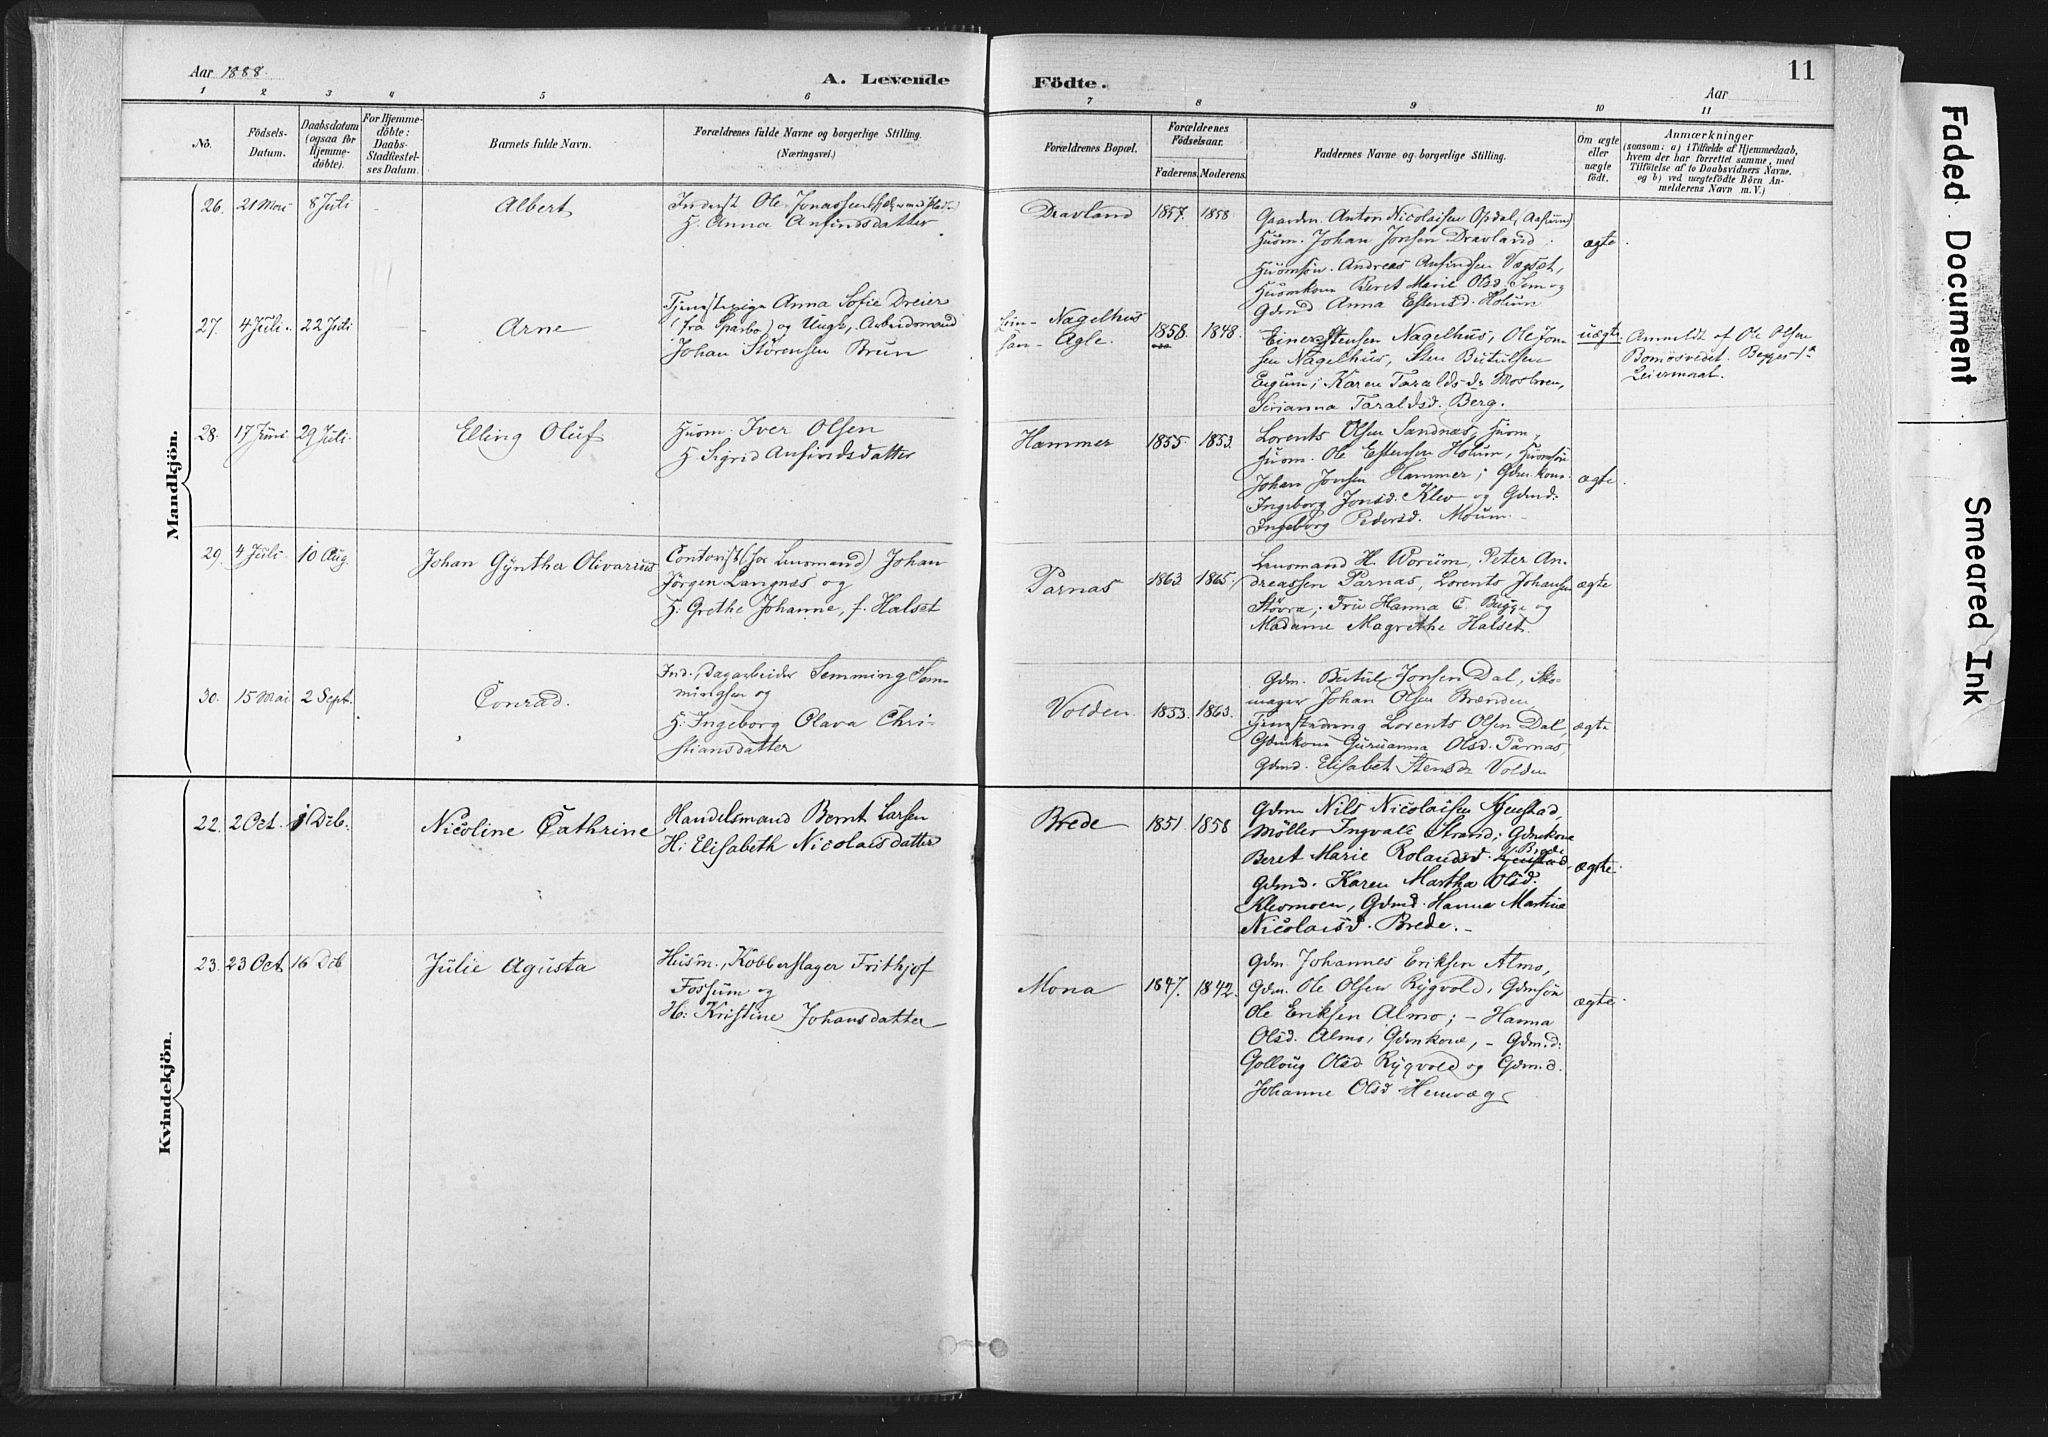 Aar 1888.
A. Levende
Födte.
Aar
11
1 2 3 4 5 6 7 8 9 10 11
No.
Födsels-
Datum.
Daabsdatum
(ogsaa for
Hjemme-
döbte).
For Hjemme-
döbte:
Daabs-
Stadfæstel-
ses Datum.
Barnets fulde Navn.
Forældrenes fulde Navne og borgerlige Stilling.
(Næringsvei.)
Forældrenes Bopæl.
Forældrenes
Födselsaar.
Faderens. Moderens.
Faddernes Navne og borgerlige Stilling.
Om ægte
eller
uægte
födt.
Anmærkninger
(saasom: a) i Tilfælde af Hjemmedaab,
hvem der har forrettet samme, med
Tilföielse af to Daabsvidners Navne.
og b) ved uægtefödte Börn An-
melderens Navn m. V.)
Mandkjön.
26. 21 Mai 8 Juli
Albert
Inderst Ole Jonassen
H. Anna Anfindsdatter
Dravland 1857. 1858
Gaardm. Anton Nicolaisen Opdal, (Aasum)
Husm. Johan Jonsen Dravland.
Husmsön. Andreas Anfindsen Vægset,
Husmkone Beret Marie Olsd. Sem og
Gdmd Anna Estensd. Holum
ægte.
27. 4 Juli. 22 Juli
Arne
Tjenestepige Anna Sofie Dreier
(fra Sparbo) og Ungk., Arbeidsmand
Johan Störensen Brun
Nagelhus
Agle.
1858. 1848.
Einer Stensen Nagelhus, Ole Jon-
sen Nagelhus, Sten Butulsen
Eggum; Karen Taraldsd. Moshven,
Serianna Taraldsd. Berg.
uægte.
Anmeldt af Ole Olsen
Bomosvedet. Begges 1ste
Leiermaal.
28. 17 Juni 29 Juli.
Elling Oluf
Husm. Iver Olsen
H. Sigrid Anfindsdatter
Hammer 1855. 1853.
Lorents Olsen Sandnæs, Husm,
Husm. Ole Estensen Holum, Husmsön
Johan Jonsen Hammer; Gdm.kone
Ingeborg Jonsd. Klev og Gdmd.
Ingeborg Pedersd. Moum.
ægte.
29. 4 Juli. 10 Aug.
Johan Gynther Olivarius
Contorist (hos Lensmand) Johan
Jörgen Langnæs og
H. Grethe Johanne, f. Halset
Parnas 1863 1865.
Lensmand H. Worum, Peter An-
dreassen Parnas, Lorents Johansen
Stövra; Fru Hanna C. Bugge og
Madame Magrethe Halset.
ægte
30. 15 Mai. 2 Sept.
Conrad.
Ind., Dagarbeider Semming Sem-
mingsen og
H. Ingeborg Olava Chri-
stiansdatter
Volden. 1853. 1863.
Gdm. Butul Jonsen Dal, Sko-
mager Johan Olsen Brænden
Tjenestedreng Lorents Olsen Dal,
Gdmkone Guruanna Olsd. Parnas,
Gdmd. Elisabet Stensd. Volden
ægte
Kvindekjön.
22. 2 Oct. 1 Dcb.
Nicoline Cathrine
Handelsmand Bernt Larsen
H: Elisabeth Nicolaisdatter
Brede 1851. 1858
Gdm Nils Nicolaisen Kjenstad,
Möller Ingvald Strand; Gdmkone
Beret Marie Rolandsd. Kjenstad
Gdmd. Karen Martha Olsd.
Klevmoen, Gdmd. Hanna Martina
Nicolaisd. Brede.
ægte.
23. 23 Oct. 16 Dcb
Julie Agusta
Husm., Kobberslager Frithjof
Fossum og
H: Kristine Johansdatter
Mona 1847. 1842.
Gdm. Johannes Eriksen Almo,
Gdm. Ole Olsen Rygvold, Gdmsön
Ole Eriksen Almo; – Hanna
Olsd. Almo, Gdmkone, – Gdm.d:
Gollaug Olsd Rygvold og Gdm.d.
Johanne Olsd Hemvæg
ægte.
Faded Document
Smeared Ink